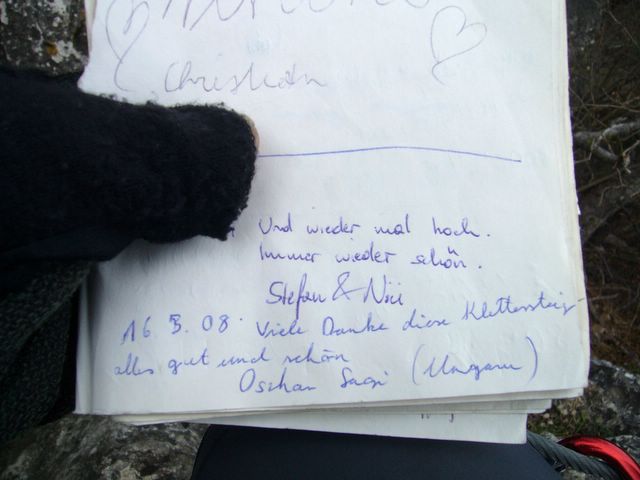 Christian
Und wieder mal hoch.
Immer wieder schön.
Stefan & Nici
16.3.08. Viele Danke diese Klettersteig
alles gut und schön
Oschan Sagi (Ungarn)